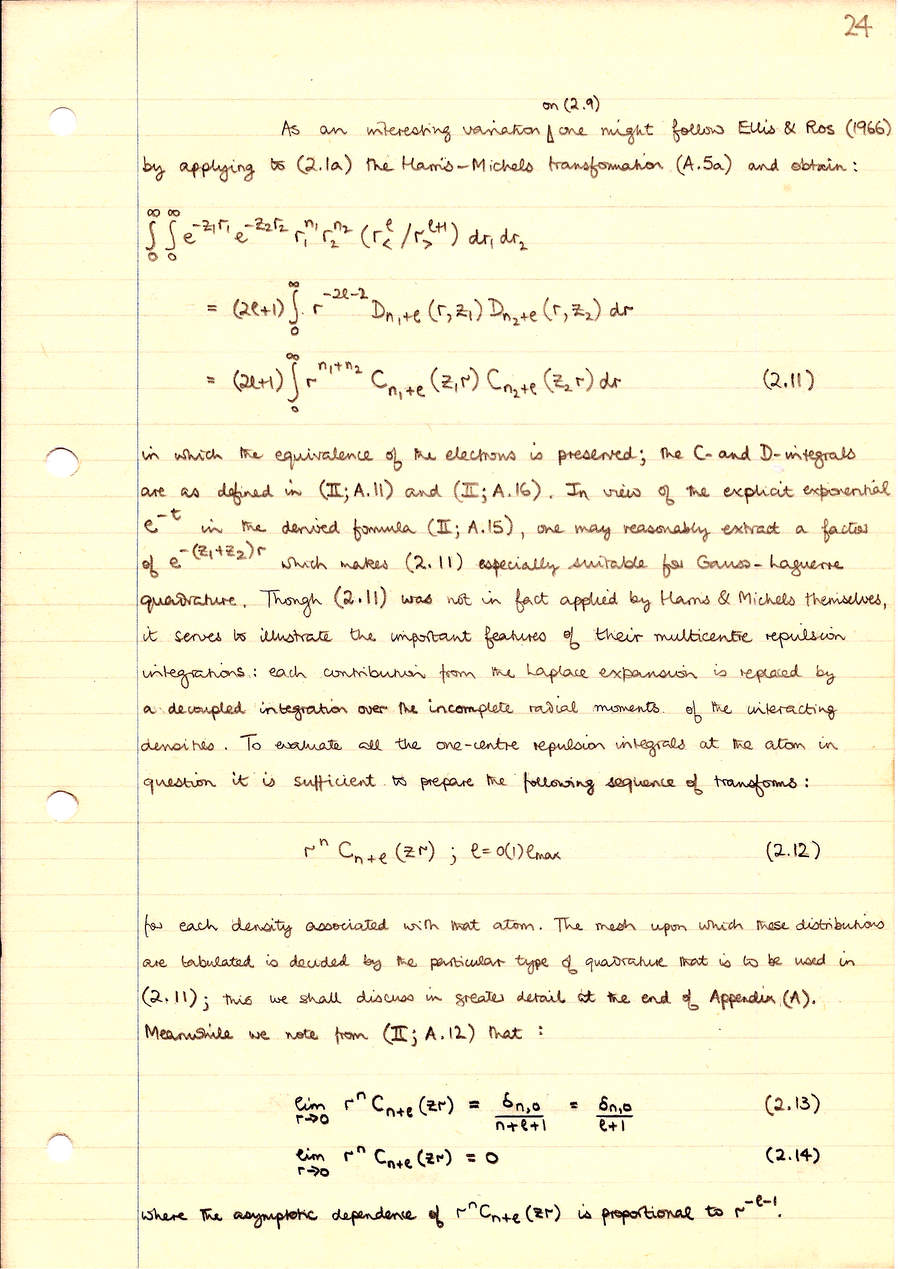 24
on (2.9)
As an interesting variation one might follow Ellis & Ros (1966)
by applying to (2.1a) the Harris-Michels transformation (A.5a) and obtain :
∫₀^∞ ∫₀^∞ e^{-z₁r₁} e^{-z₂r₂} r₁^{n₁} r₂^{n₂} (r_<^ℓ / r_>^{ℓ+1}) dr₁ dr₂
= (2ℓ+1) ∫₀^∞ r^{-2ℓ-2} D_{n₁+ℓ} (r, z₁) D_{n₂+ℓ} (r, z₂) dr
= (2ℓ+1) ∫₀^∞ r^{n₁+n₂} C_{n₁+ℓ} (z₁r) C_{n₂+ℓ} (z₂r) dr (2.11)
in which the equivalence of the electrons is preserved; the C- and D-integrals
are as defined in (II; A.11) and (II; A.16). In view of the explicit exponential
e^{-t} in the derived formula (II; A.15), one may reasonably extract a factor
of e^{-(z₁+z₂)r} which makes (2.11) especially suitable for Gauss-Laguerre
quadrature. Though (2.11) was not in fact applied by Harris & Michels themselves,
it serves to illustrate the important features of their multicentre repulsion
integrations: each contribution from the Laplace expansion is replaced by
a decoupled integration over the incomplete radial moments of the interacting
densities. To evaluate all the one-centre repulsion integrals at the atom in
question it is sufficient to prepare the following sequence of transforms :
r^n C_{n+ℓ} (zr) ; ℓ=0(1)ℓmax (2.12)
for each density associated with that atom. The mesh upon which these distributions
are tabulated is decided by the particular type of quadrature that is to be used in
(2.11); this we shall discuss in greater detail at the end of Appendix (A).
Meanwhile we note from (II; A.12) that :
lim_{r→0} r^n C_{n+ℓ} (zr) = δ_{n,0}/(n+ℓ+1) = δ_{n,0}/(ℓ+1) (2.13)
lim_{r→0} r^n C_{n+ℓ} (zr) = 0 (2.14)
where the asymptotic dependence of r^n C_{n+ℓ} (zr) is proportional to r^{-ℓ-1}.